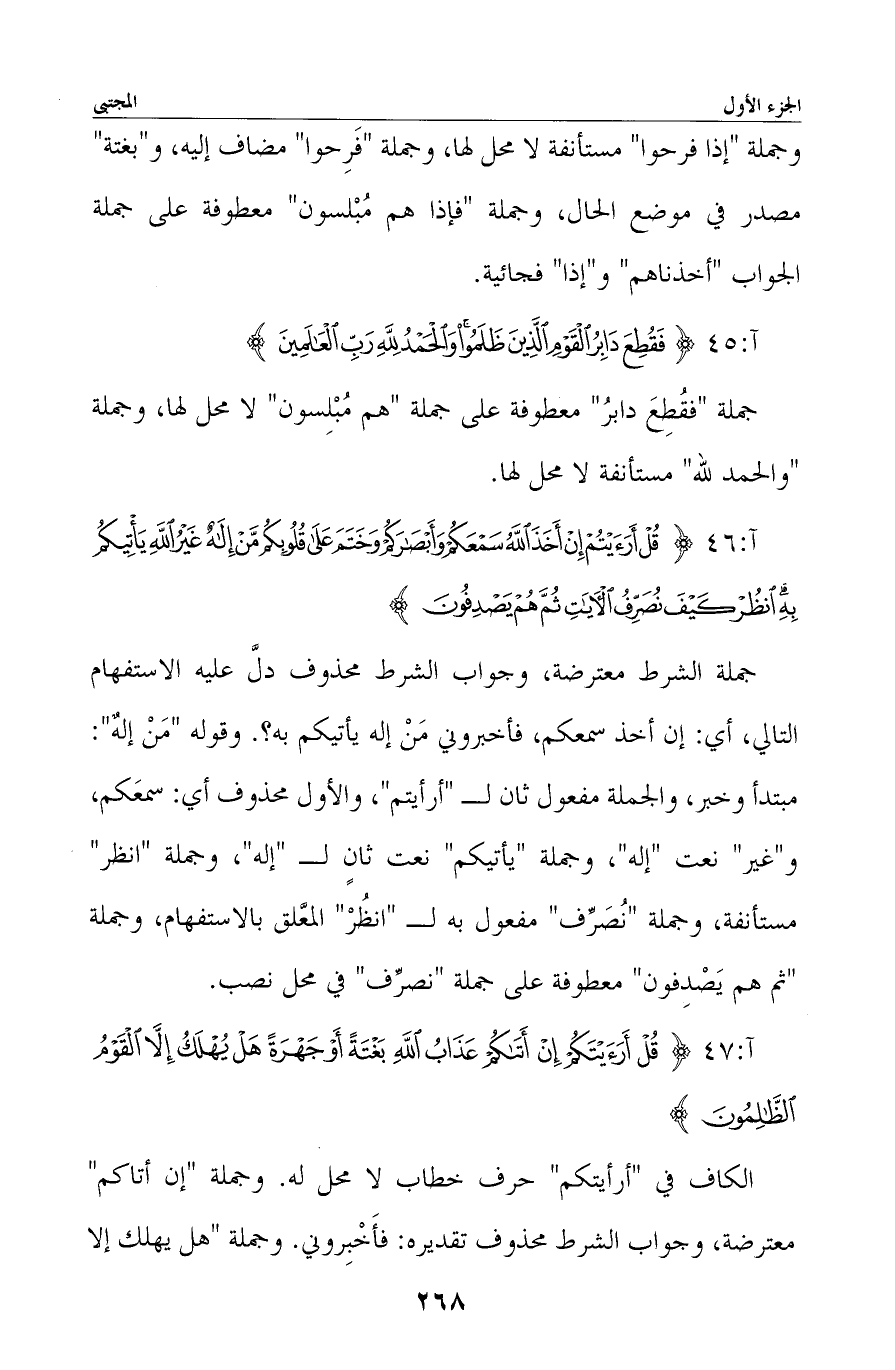 الجزء الأول
المجتبى
وجملة "إذا فرحوا" مستأنفة لا محل لها، وجملة "فَرِحوا" مضاف إليه، و"بغتة"
مصدر في موضع الحال، وجملة "فإذا هم مُبْلسون" معطوفة على جملة
الجواب "أخذناهم" و"إذا" فجائية.
آ:٤٥ ﴿ فَقُطِعَ دَابِرُ ٱلْقَوْمِ ٱلَّذِينَ ظَلَمُوا۟ ۚ وَٱلْحَمْدُ لِلَّهِ رَبِّ ٱلْعَـٰلَمِينَ ﴾
جملة "فقُطِعَ دابرُ" معطوفة على جملة "هم مُبْلِسون" لا محل لها، وجملة
"والحمد لله" مستأنفة لا محل لها.
آ:٤٦ ﴿ قُلْ أَرَءَيْتُمْ إِنْ أَخَذَ ٱللَّهُ سَمْعَكُمْ وَأَبْصَـٰرَكُمْ وَخَتَمَ عَلَىٰ قُلُوبِكُم مَّنْ إِلَـٰهٌ غَيْرُ ٱللَّهِ يَأْتِيكُم
بِهِ ۗ ٱنظُرْ كَيْفَ نُصَرِّفُ ٱلْـَٔايَـٰتِ ثُمَّ هُمْ يَصْدِفُونَ ﴾
جملة الشرط معترضة، وجواب الشرط محذوف دلَّ عليه الاستفهام
التالي، أي: إن أخذ سمعكم، فأخبروني مَنْ إله يأتيكم به؟. وقوله "مَنْ إلهٌ":
مبتدأ وخبر، والجملة مفعول ثان لـــ "أرأيتم"، والأول محذوف أي: سمعَكم،
و"غير" نعت "إله"، وجملة "يأتيكم" نعت ثانٍ لـــ "إله"، وجملة "انظر"
مستأنفة، وجملة "نُصَرِّف" مفعول به لـــ "انظُرْ" المعَّلق بالاستفهام، وجملة
"ثم هم يَصْدِفون" معطوفة على جملة "نصرِّف" في محل نصب.
آ:٤٧ ﴿ قُلْ أَرَءَيْتَكُمْ إِنْ أَتَىٰكُمْ عَذَابُ ٱللَّهِ بَغْتَةً أَوْ جَهْرَةً هَلْ يُهْلَكُ إِلَّا ٱلْقَوْمُ
ٱلظَّـٰلِمُونَ ﴾
الكاف في "أرأيتكم" حرف خطاب لا محل له. وجملة "إن أتاكم"
معترضة، وجواب الشرط محذوف تقديره: فأَخْبِروني. وجملة "هل يهلك إلا
٢٦٨